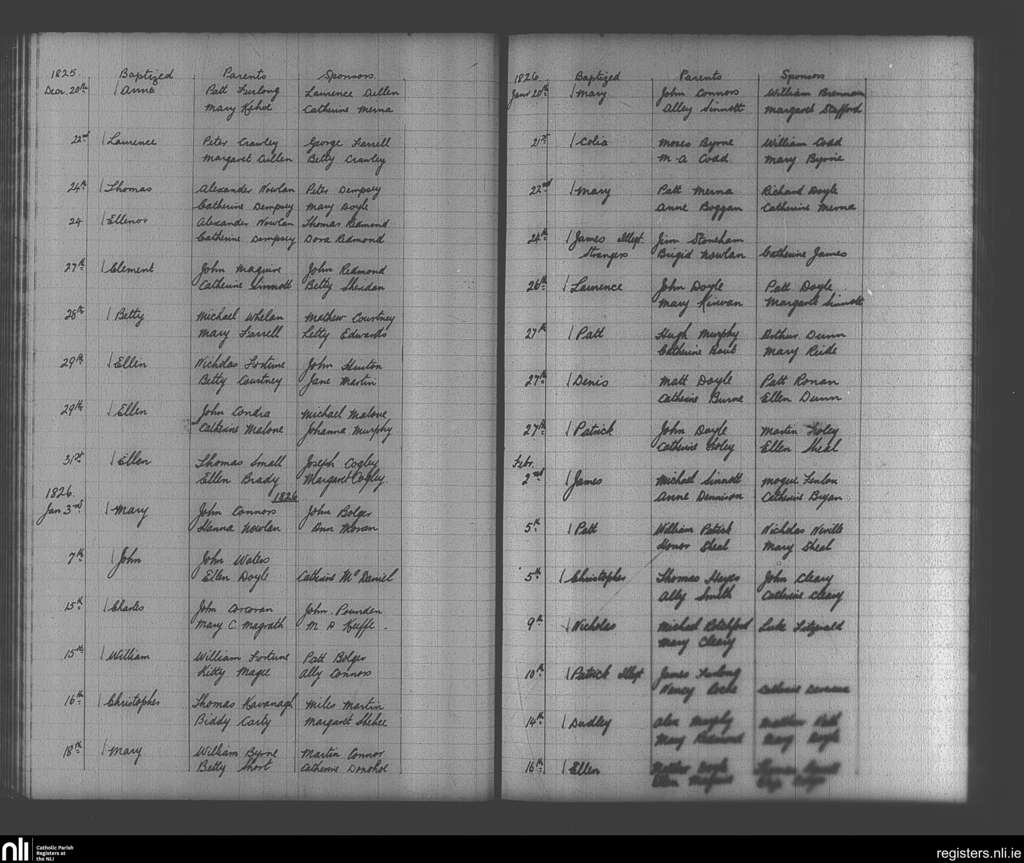 1825 Baptized Parents Sponsors
Decr. 20th Anna Patt Furlong Laurence Cullen
Mary Kehoe Catherine Merna
22nd Laurence Peter Crawley George Farrell
Margaret Cullen Betty Crawley
24th Thomas Alexander Nowlan Peter Dempsey
Catherine Dempsey Mary Doyle
24 Ellenor Alexander Nowlan Thomas Redmond
Catherine Dempsey Dora Redmond
27th Clement John Maguire John Redmond
Catherine Sinnott Betty Sheridan
28th Betty Michael Whelan Mathew Courtney
Mary Farrell Letty Edwards
29th Ellen Nicholas Fortune John Hinton
Betty Courtney Jane Martin
29th Ellen John Condra Michael Malone
Catherine Malone Johanna Murphy
31st Ellen Thomas Small Joseph Cogley
Ellen Brady Margaret Cogley
1826 1826
Jan 3rd Mary John Connors John Bolger
Hanna Nowlan Ann Moran
7th John John Waters
Ellen Doyle Catherine McDaniel
15th Charles John Corcoran John Pounden
Mary C. Magrath M A Keiffe.
15th William William Fortune Patt Bolger
Kitty Magee Ally Connors
16th Christopher Thomas Kavanagh Miles Martin
Biddy Carty Margaret Shehee
18th Mary William Byrne Martin Connor
Betty Short Catherine Donohoe
1826 Baptized Parents Sponsors
Janr 20th Mary John Connors William Brennan
Alley Sinnott Margaret Stafford
21st Celia Moses Byrne William Codd
M. A Codd Mary Byrne
22nd Mary Patt Merna Richard Doyle
Anne Boggan Catherine Merna
24th James Illegt. Jim Stoneham
Strangers Brigid Nowlan Catherine James
26th Laurence John Doyle Patt Doyle
Mary Kirwan Margaret Sinnott
27th Patt Hugh Murphy Arthur Dunn
Catherine Mary Reide
27th Denis Matt Doyle Patt Ronan
Catherine Burne Ellen Dunn
27th Patrick John Doyle Martin Foley
Catherine Foley Ellen Sheal
Febr.
2nd James Michael Sinnott Mogue Fenlon
Anne Dennison Catherine Bryan
5th Patt William Patrick Nicholas Neville
Honor Sheal Mary Sheal
5th Christopher Thomas Hayes John Cleary
Ally Smith Catherine Cleary
9th Nicholas Michael Rotchford Luke Fitzgerald
Mary Cleary
10th Patrick Illegt James Furlong
Nancy Catherine
14th Dudley Alex Murphy Matthew
Mary Redmond Mary Doyle
16th Ellen Doyle
Ellen
nli
Catholic Parish
Registers at
the NLI
registers.nli.ie